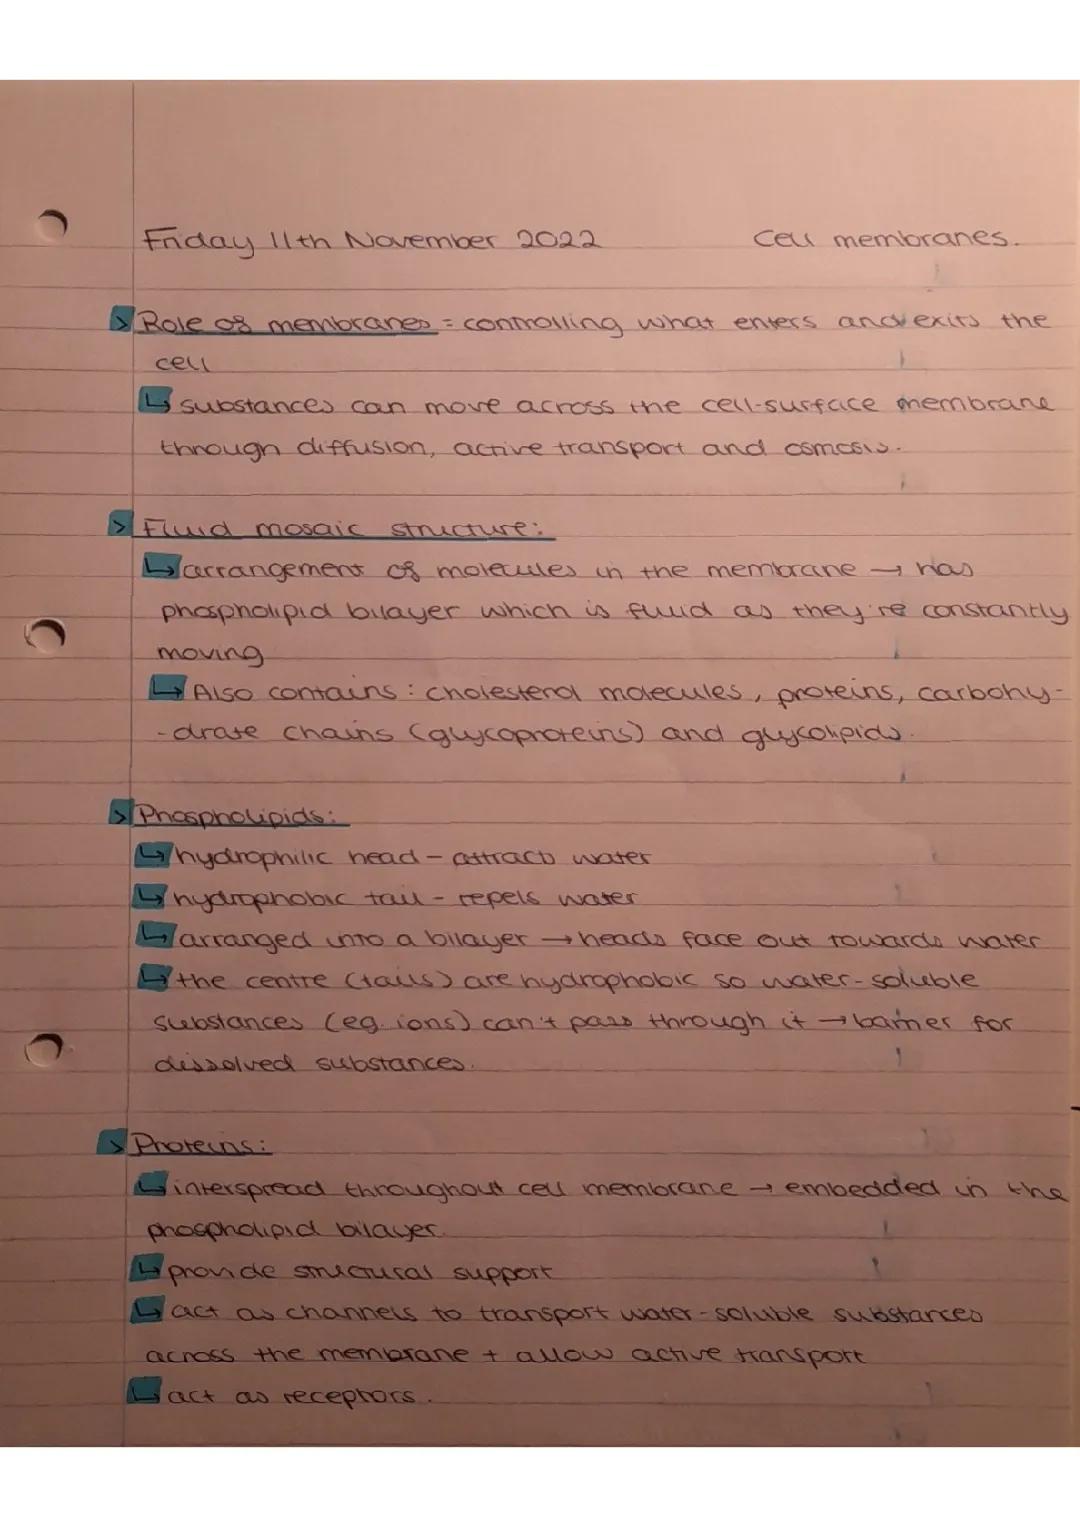 Friday 11th November 2022 Cell membranes.
> Role of membranes = controlling what enters and exits the
cell
↳ substances can move across the cell-surface membrane
through diffusion, active transport and osmosis.
> Fluid mosaic structure:
↳ arrangement of molecules in the membrane → has
phospholipid bilayer which is fluid as they're constantly
moving
↳ Also contains: cholesterol molecules, proteins, carbohy-
-drate chains (glycoproteins) and glycolipids.
> Phospholipids:
↳ hydrophilic head - attracts water
↳ hydrophobic tail - repels water
↳ arranged into a bilayer → heads face out towards water
↳ the centre (tails) are hydrophobic so water-soluble
substances (eg. ions) can't pass through it → barrier for
dissolved substances.
> Proteins:
↳ interspread throughout cell membrane → embedded in the
phospholipid bilayer.
↳ provide structural support
↳ act as channels to transport water-soluble substances
across the membrane + allow active transport
↳ act as receptors.